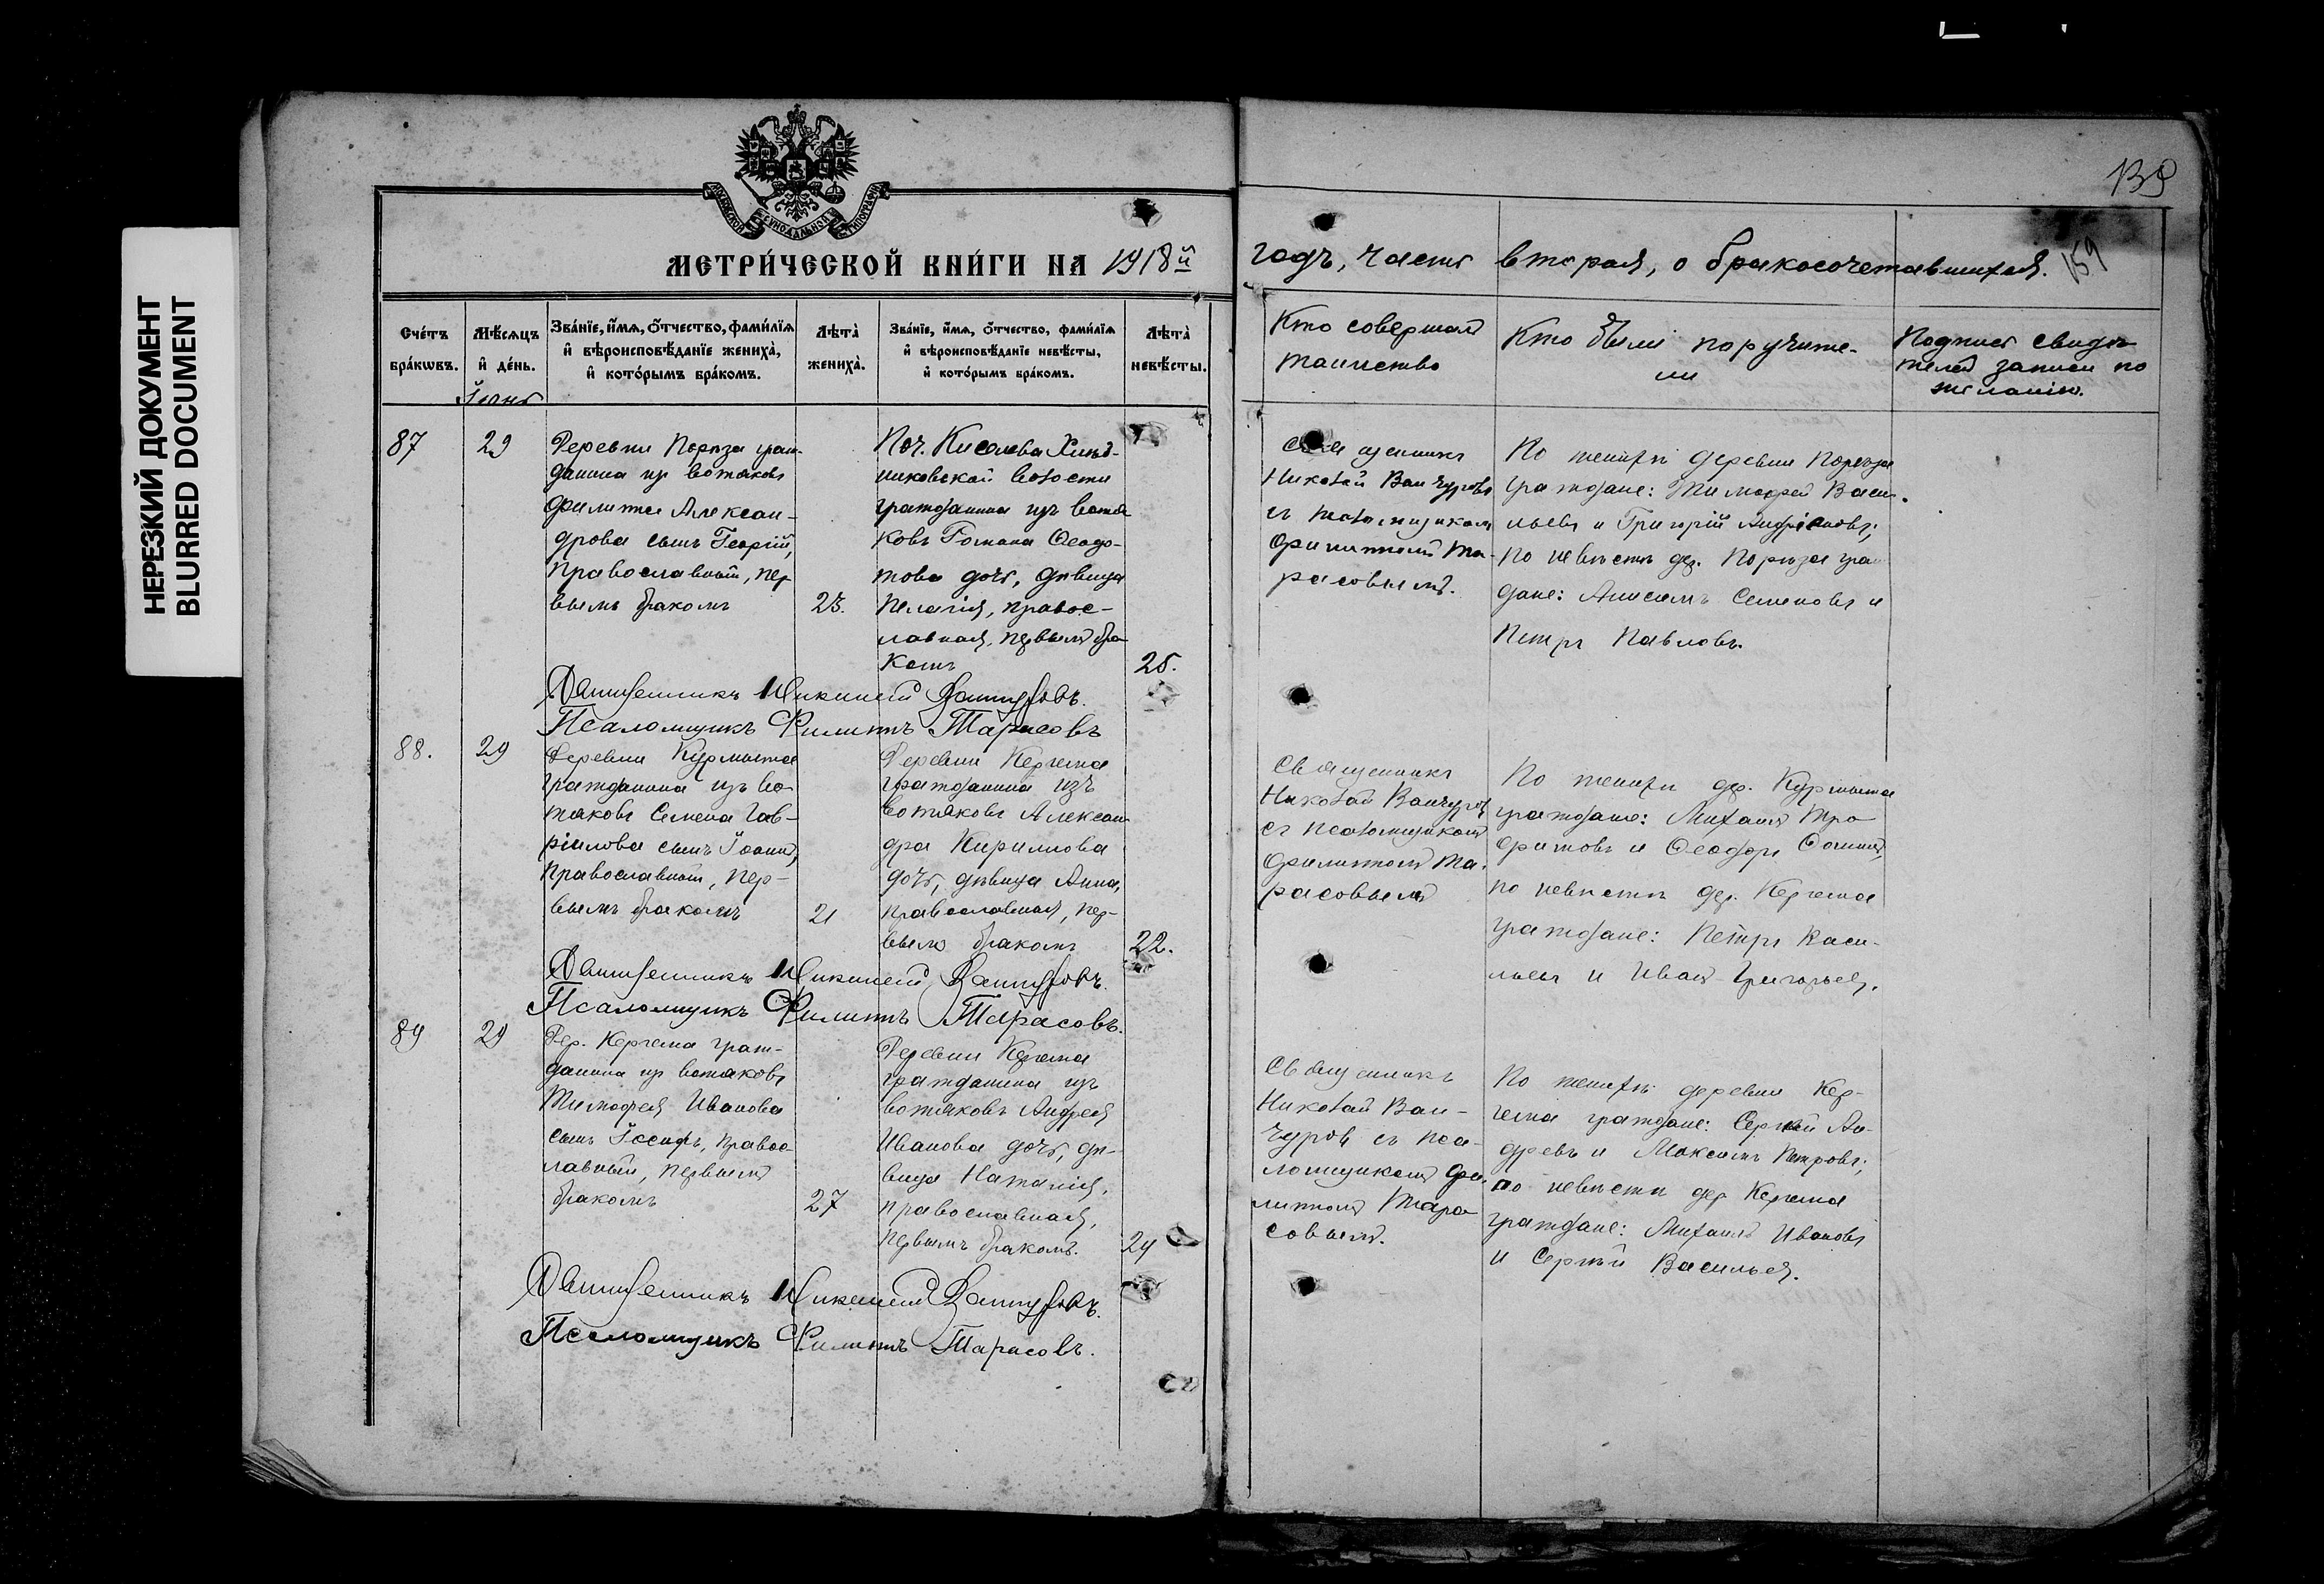 НЕРЕЗКИЙ ДОКУМЕНТ
BLURRED DOCUMENT
139
МОСКОВСКОЙ СѴНОДАЛЬНОЙ ТИПОГРАФІИ
МЕТРИ́ЧЕСКОЙ КНИ́ГИ НА 1918й
годъ, часть вторая, о бракосочетавшихся. 159
Сче́тъ бра́кѡвъ.
Мѣ́сѧцъ и҆ де́нь.
Іюнь
Зва́нїе, и҆́мѧ, ѻ҆́тчество, фами́лїѧ
и҆ вѣроисповѣ́данїе жениха̀,
и҆ кото́рымъ бра́комъ.
Лѣта̀ жениха̀.
Зва́нїе, и҆́мѧ, ѻ҆́тчество, фами́лїѧ
и҆ вѣроисповѣ́данїе невѣ́сты,
и҆ кото́рымъ бра́комъ.
Лѣта̀ невѣ́сты.
Кто совершалъ
таинство
Кто были поручите-
ли
Подпись свидѣ-
телей записи по
желанію.
87
29
Деревни Порѣза граж-
данина изъ вотяковъ
Филиппа Алексан-
дрова сынъ Георгій,
православный, пер-
вымъ бракомъ
23.
Поч. Киселева
волости
гражданина изъ вотя
ковъ Романа Ѳеодо-
това дочь, дѣвица
Пелагія, правос-
лавная, первымъ бра
комъ
25.
Священникъ
Николай Ванчуровъ
съ псаломщикомъ
Филиппомъ Та-
расовымъ.
По женихѣ деревни Порѣза
граждане: Тимофей Васи-
льевъ и Григорій Андріановъ;
по невѣстѣ дер. Порѣза граж
дане: Анисимъ Семеновъ и
Петръ Павловъ.
Священникъ Николай Ванчуровъ.
Псаломщикъ Филиппъ Тарасовъ
88.
29
Деревни Курмыжа
гражданина изъ во-
тяковъ Семена Гав-
ріилова сынъ Іоаннъ,
православный, пер-
вымъ бракомъ
21
Деревни Кергема
гражданина изъ
вотяковъ Алексан-
дра Кириллова
дочь, дѣвица Анна,
православная, пер-
вымъ бракомъ
22.
Священникъ
Николай Ванчуровъ
съ псаломщикомъ
Филиппомъ Та-
расовымъ
По женихѣ дер. Курмыжа
граждане: Михаилъ Тро-
фимовъ и Ѳеодоръ
по невѣстѣ дер. Кергема
граждане: Петръ Васи-
льевъ и Иванъ Григорьев.
Священникъ Николай Ванчуровъ.
Псаломщикъ Филиппъ Тарасовъ.
89
29
Дер. Кергема граж-
данина изъ вотяковъ
Тимофея Иванова
сынъ Іосифъ, правос-
лавный, первымъ
бракомъ
27
Деревни Кергема
гражданина изъ
вотяковъ Андрея
Иванова дочь, дѣ-
вица Наталія,
православная,
первымъ бракомъ.
24
Священникъ
Николай Ван-
чуровъ съ пса-
ломщикомъ Фи-
липпомъ Тара-
совымъ.
По женихѣ деревни Кер-
гема граждане: Сергѣй Ан-
дреевъ и Максимъ Петровъ;
по невѣстѣ дер. Кергема
граждане: Михаилъ Ивановъ
и Сергѣй Васильев.
Священникъ Николай Ванчуровъ.
Псаломщикъ Филиппъ Тарасовъ.